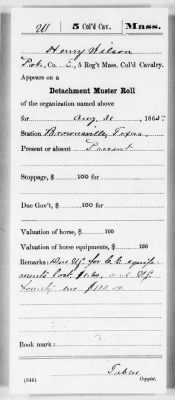 W 5 Col'd Cav. Mass.
Henry Wilson
Pvt., Co. E, 5 Reg't Mass. Col'd Cavalry.
Appears on a
Detachment Muster Roll
of the organization named above
for Aug 31, 1865
Station Brownsville, Texas.
Present or absent Present
Stoppage, $ 100 for
Due Gov't, $ 100 for
Valuation of horse, $ 100
Valuation of horse equipments, $ 100
Remarks: Due U.S. for equip-
ments lost and U.S.
bounty due
Book mark:
(344) Copyist.